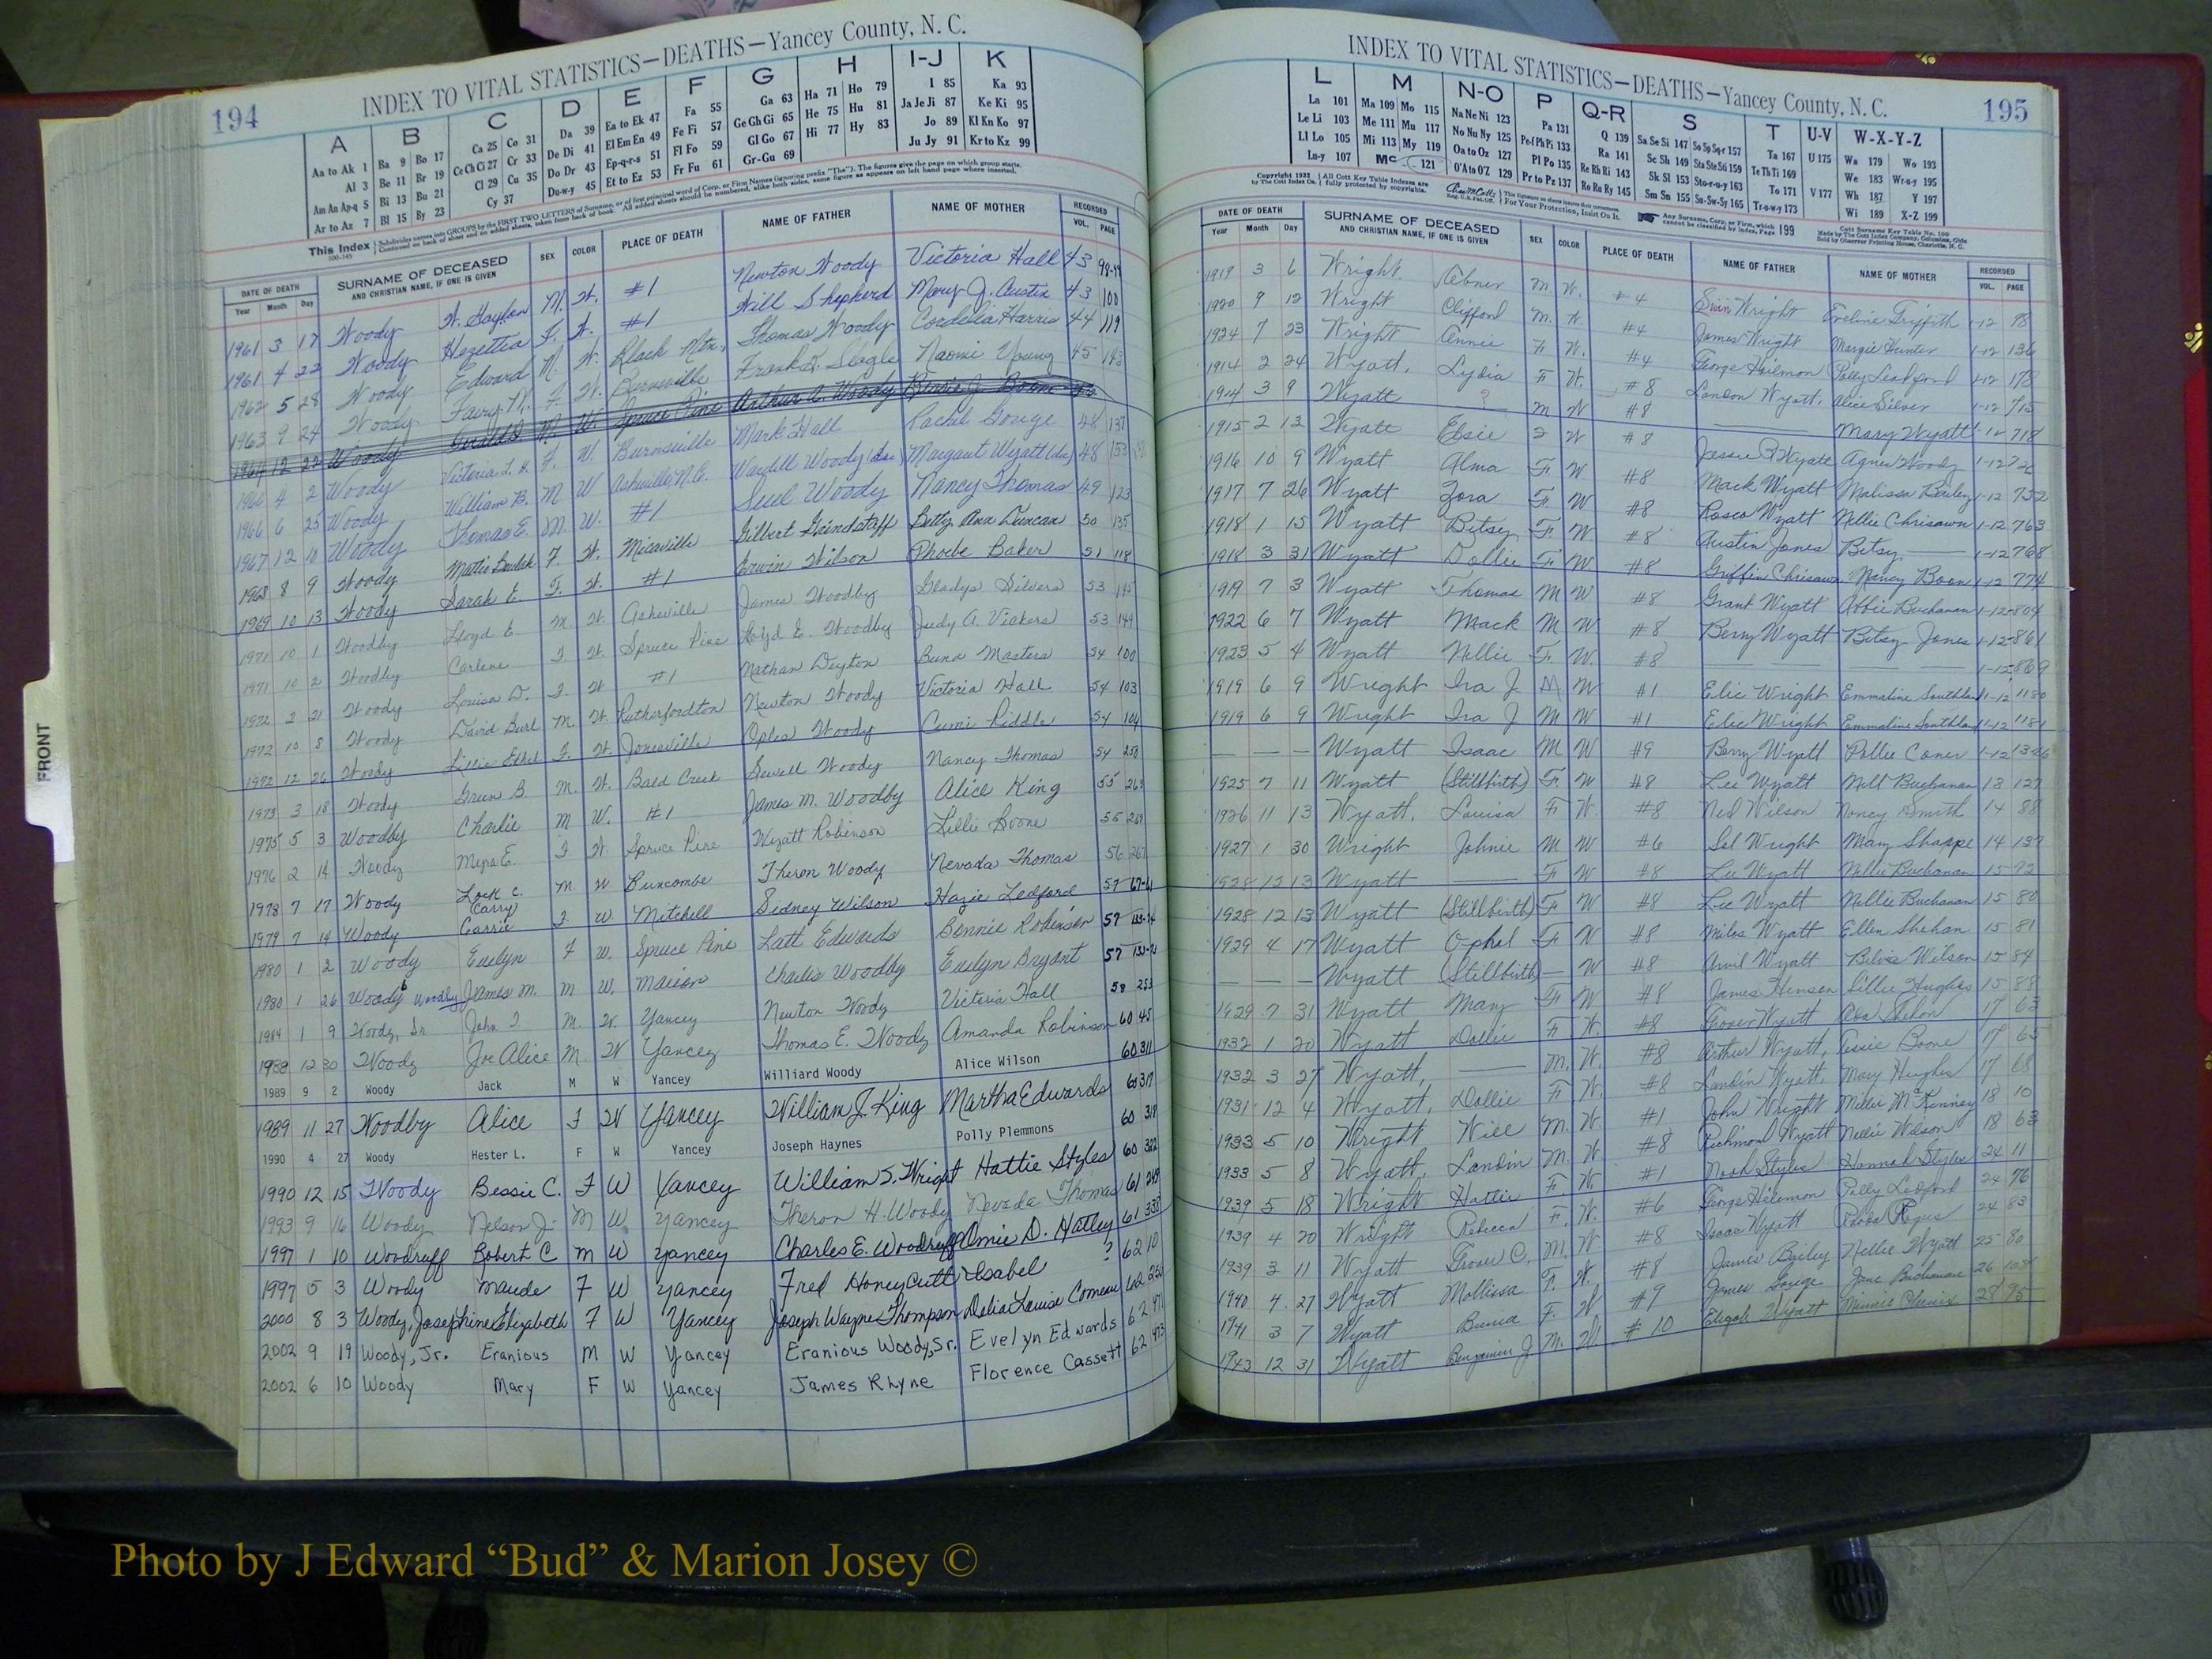 194
INDEX TO VITAL STATISTICS—DEATHS—Yancey County, N. C.
A B C D E F G H I-J K
Aa to Ak 1 Ba 9 Bo 17 Ca 25 Co 31 Da 39 Ea to Ek 47 Fa 55 Ga 63 Ha 71 Ho 79 I 85 Ka 93
Al 3 Be 11 Br 19 Ce Ch Ci 27 Cr 33 De Di 41 El Em En 49 Fe Fi 57 Ge Gh Gi 65 He 75 Hu 81 Ja Je Ji 87 Ke Ki 95
Am An Ap-q 5 Bi 13 Bu 21 Cl 29 Cu 35 Do Dr 43 Ep-q-r-s 51 Fl Fo 59 Gl Go 67 Hi 77 Hy 83 Jo 89 Kl Kn Ko 97
Ar to Az 7 Bl 15 By 23 Cy 37 Du-w-y 45 Et to Ez 53 Fr Fu 61 Gr-Gu 69 Ju Jy 91 Kr to Kz 99
DATE OF DEATH SURNAME OF DECEASED SEX COLOR PLACE OF DEATH NAME OF FATHER NAME OF MOTHER RECORDED
Year Month Day AND CHRISTIAN NAME, IF ONE IS GIVEN VOL. PAGE
1961 3 17 Woody M. W. #1 Newton Woody Victoria Hall 43 98-99
1961 4 22 Woody Hezettia F. W. #1 Will Shepherd Mary J. Austin 43 100
1962 5 28 Woody Edward M. W. Black Mtn. Thomas Woody Cordelia Harris 44 119
1963 9 24 Woody Fairy M. F. W. Burnsville Frank D. Slagle Naomi Young 45 143
1964 12 22 Woody M. W. Spruce Pine Arthur A. Woody Bessie J. Boone
1966 4 2 Woody Victoria L. H. F. W. Burnsville Mark Hall Rachel Gouge 48 137
1966 6 25 Woody William B. M W Asheville, N.C. Wardell Woody Margaret Wyatt 48 153
1967 12 10 Woody Thomas E. M. W. #1 Suel Woody Nancy Thomas 49 123
1968 8 9 Woody Mattie Beulah F. W. Micaville Gilbert Grindstaff Betty Ann Duncan 50 135
1969 10 13 Woody Sarah E. F. W. #1 Erwin Wilson Phoebe Baker 51 118
1971 10 1 Woodby Lloyd E. M W. Asheville James Woodby Gladys Silvers 53 145
1971 10 2 Woodby Carlene F. W. Spruce Pine Lloyd E. Woodby Judy A. Vickers 53 149
1972 2 21 Woody Louisa D. F. W #1 Nathan Deyton Buna Masters 54 100
1972 10 8 Woody David Burl M. W. Rutherfordton Newton Woody Victoria Hall 54 103
1972 12 26 Woody Lillie Ethel F. W. Jonesville Oples Woody Cumi Riddle 54 104
1973 3 18 Woody Green B. M. W. Bald Creek Sewell Woody Nancy Thomas 54 258
1975 5 3 Woodby Charlie M W. #1 James M. Woodby Alice King 55 263
1976 2 14 Woody F W. Spruce Pine Wyatt Robinson Lillie Boone
1978 7 17 Woody Lock C. M. W Buncombe Theron Woody Nevada Thomas 56 267
1979 7 14 Woody (Carry) Carrie F W Mitchell Sidney Wilson Hazie Ledford 57
1980 1 2 Woody Evelyn F W. Spruce Pine Latt Edwards Bonnie Robinson 57
1980 1 26 Woody Woodby James M. M W. Marion Charlie Woodby Evelyn Bryant 57
1984 1 9 Woody, Sr. John T. M. W. Yancey Newton Woody Victoria Hall 58 253
1988 12 30 Woody Joe Alice M W Yancey Thomas E. Woody Amanda Robinson 60 45
1989 9 2 Woody Jack M W Yancey Williard Woody Alice Wilson 60 311
1989 11 27 Woodby Alice F W Yancey William J. King Martha Edwards 60 317
1990 4 27 Woody Hester L. F W Yancey Joseph Haynes Polly Plemmons 60 318
1990 12 15 Woody Bessie C. F W Yancey William S. Wright Hattie Styles 60 322
1993 9 16 Woody Nelson J. M W Yancey Theron H. Woody Nevada Thomas 61 249
1997 1 10 Woodruff Robert C M W Yancey Charles E. Woodruff Omie D. Hatley 61 338
1997 5 3 Woody Maude F W Yancey Fred Honeycutt Isabel ? 62 10
2000 8 3 Woody, Josephine Elizabeth F W Yancey Joseph Wayne Thompson Delia Louise Comeau 62 250
2002 9 19 Woody, Jr. Eranious M W Yancey Eranious Woody, Sr. Evelyn Edwards 62 471
2002 6 10 Woody Mary F W Yancey James Rhyne Florence Cassett 62 473
FRONT
INDEX TO VITAL STATISTICS—DEATHS—Yancey County, N. C.
195
L M N-O P Q-R S T U-V W-X-Y-Z
La 101 Ma 109 Mo 115 Na Ne Ni 123 Pa 131 Q 139 Sa Se Si 147 So Sp Sq-r 157 Ta 167 U 175 Wa 179 Wo 193
Le Li 103 Me 111 Mu 117 No Nu Ny 125 Pe-f Ph Pi 133 Ra 141 Sc Sh 149 Sta Ste Sti 159 Te Th Ti 169 We 183 Wr-u-y 195
Ll Lo 105 Mi 113 My 119 Oa to Oz 127 Pl Po 135 Re Rh Ri 143 Sk Sl 153 Sto-r-u-y 163 To 171 V 177 Wh 187 Y 197
Lu-y 107 Mc 121 O'A to O'Z 129 Pr to Pz 137 Ro Ru Ry 145 Sm Sn 155 Su-Sw-Sy 165 Tr-u-w-y 173 Wi 189 X-Z 199
DATE OF DEATH SURNAME OF DECEASED SEX COLOR PLACE OF DEATH NAME OF FATHER NAME OF MOTHER RECORDED
Year Month Day AND CHRISTIAN NAME, IF ONE IS GIVEN VOL. PAGE
1919 3 6 Wright Abner M. W. #4 Wright Eveline Griffith 1-12 98
1920 9 12 Wright Clifford M. W. #4 James Wright Margie Hunter 1-12 136
1924 7 23 Wright Annie F W. #4 George Hilemon Polly Leadford 1-12 178
1914 2 24 Wyatt, Lydia F W. #8 Landon Wyatt, Alice Silver 1-12 715
1914 3 9 Wyatt M W #8 Mary Wyatt 1-12 718
1915 2 13 Wyatt Elsie W #8 Jessie R Wyatt Agnes Woody 1-12
1916 10 9 Wyatt Alma F W #8 Mack Wyatt Malissa Bailey 1-12 752
1917 7 26 Wyatt Zora F W #8 Rosco Wyatt Nellie Chrisawn 1-12 763
1918 1 15 Wyatt Betsey F W #8 Austin Jones Betsy 1-12 768
1918 3 31 Wyatt Dollie F W #8 Griffin Chrisawn Nancy Boon 1-12 774
1919 7 3 Wyatt Thomas M W #8 Grant Wyatt Abbie Buchanan 1-12 804
1922 6 7 Wyatt Mack M W #8 Berry Wyatt Betsy Jones 1-12 861
1923 5 4 Wyatt Nellie F W. #8 1-12 869
1919 6 9 Wright Ira J. M W #1 Elic Wright Emmaline Southland 1-12 1180
1919 6 9 Wright Ira J M W #1 Elic Wright Emmaline Southland 1-12 1181
Wyatt Isaac M W #9 Berry Wyatt Pollie Coner 1-12 1346
1925 7 11 Wyatt (Stillbirth) F W #8 Lee Wyatt Nell Buchanan 13 127
1926 11 13 Wyatt, Louisa F W. #8 Ned Wilson Nancy Smith 14 88
1927 1 30 Wright Johnie M W #6 Sol Wright Mary Sharpe 14 137
1928 12 13 Wyatt F W #8 Lee Wyatt Nellie Buchanan 15
1928 12 13 Wyatt (Stillbirth) F W #8 Lee Wyatt Nellie Buchanan 15 80
1929 4 17 Wyatt Ophel F W #8 Milas Wyatt Ellen Shehan 15 81
Wyatt (Stillbirth) W #8 Arvil Wyatt Wilson 15 84
1929 7 31 Wyatt Mary F W #8 James Hensen Lillie Hughes 15 88
1932 1 20 Wyatt Dollie F W. #8 Grover Wyatt 17 63
1932 3 27 Wyatt, M. W. #8 Arthur Wyatt, Tessie Boone 17 65
1931 12 4 Wyatt, Dollie F W. #8 Landin Wyatt, Mary Hughes 17 68
1933 5 10 Wright Will M. W. #1 John Wright Millie McKenney 18 10
1933 5 8 Wyatt, Landin M. W. #8 Richmond Wyatt Nellie Wilson 18 63
1939 5 18 Wright Hattie F. W. #1 Noah Styles Hannah Styles 24 11
1939 4 20 Wright Rebecca F. W. #6 George Hilemon Polly Ledford 24 76
1939 3 11 Wyatt Grover C. M. W #8 Isaac Wyatt 24 83
1940 4 27 Wyatt Mollissa F. W. #8 James Bailey Nellie Wyatt 25 80
1941 3 7 Wyatt F. W #9 James Gouge Jane Buchanan 26 108
1943 12 31 Wyatt Benjamin J. M. W. #10 Elijah Wyatt 28 95
Photo by J Edward “Bud” & Marion Josey ©